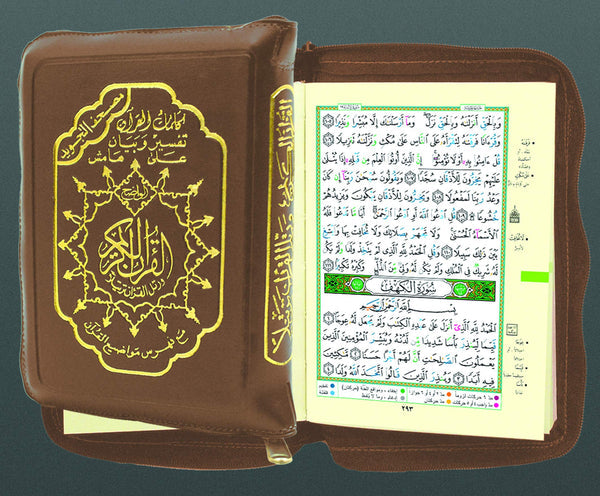 مصحف التجويد
كلمات القرآن
تفسير وبيان
على هامش
القرآن الكريم
ورتل القرآن ترتيلا
مع فهرس مواضيع القرآن
القرآن الكريم ورتل القرآن ترتيلا
وَبِالْحَقِّ أَنزَلْنَٰهُ وَبِالْحَقِّ نَزَلَ وَمَا أَرْسَلْنَٰكَ إِلَّا مُبَشِّرًا وَنَذِيرًا ١٠٥
وَقُرْءَانًا فَرَقْنَٰهُ لِتَقْرَأَهُ عَلَى النَّاسِ عَلَىٰ مُكْثٍ وَنَزَّلْنَٰهُ تَنزِيلًا ١٠٦
قُلْ ءَامِنُوا بِهِ أَوْ لَا تُؤْمِنُوا إِنَّ الَّذِينَ أُوتُوا الْعِلْمَ مِن قَبْلِهِ إِذَا يُتْلَىٰ
عَلَيْهِمْ يَخِرُّونَ لِلْأَذْقَانِ سُجَّدًا ١٠٧ وَيَقُولُونَ سُبْحَٰنَ رَبِّنَا إِن كَانَ
وَعْدُ رَبِّنَا لَمَفْعُولًا ١٠٨ وَيَخِرُّونَ لِلْأَذْقَانِ يَبْكُونَ وَيَزِيدُهُمْ
خُشُوعًا ١٠٩ قُلِ ادْعُوا اللَّهَ أَوِ ادْعُوا الرَّحْمَٰنَ أَيًّا مَّا تَدْعُوا فَلَهُ
الْأَسْمَاءُ الْحُسْنَىٰ وَلَا تَجْهَرْ بِصَلَاتِكَ وَلَا تُخَافِتْ بِهَا وَابْتَغِ
بَيْنَ ذَٰلِكَ سَبِيلًا ١١٠ وَقُلِ الْحَمْدُ لِلَّهِ الَّذِي لَمْ يَتَّخِذْ وَلَدًا وَلَمْ يَكُن
لَّهُ شَرِيكٌ فِي الْمُلْكِ وَلَمْ يَكُن لَّهُ وَلِيٌّ مِّنَ الذُّلِّ وَكَبِّرْهُ تَكْبِيرًا ١١١
سُورَةُ الْكَهْفِ
بِسْمِ اللَّهِ الرَّحْمَٰنِ الرَّحِيمِ
الْحَمْدُ لِلَّهِ الَّذِي أَنزَلَ عَلَىٰ عَبْدِهِ الْكِتَٰبَ وَلَمْ يَجْعَل لَّهُ عِوَجًا ١
قَيِّمًا لِّيُنذِرَ بَأْسًا شَدِيدًا مِّن لَّدُنْهُ وَيُبَشِّرَ الْمُؤْمِنِينَ الَّذِينَ
يَعْمَلُونَ الصَّٰلِحَٰتِ أَنَّ لَهُمْ أَجْرًا حَسَنًا ٢ مَّٰكِثِينَ
فِيهِ أَبَدًا ٣ وَيُنذِرَ الَّذِينَ قَالُوا اتَّخَذَ اللَّهُ وَلَدًا ٤
٢٩٣